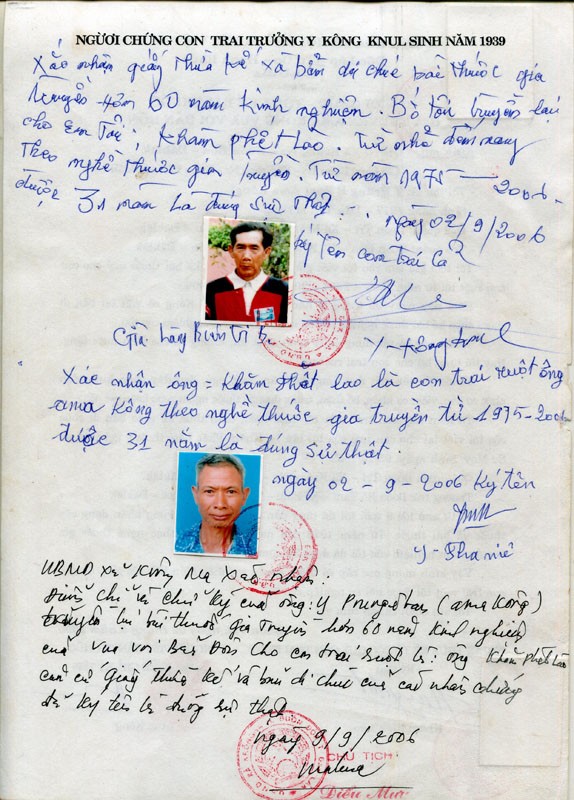 NGƯỜI CHỨNG CON TRAI TRƯỞNG Y KÔNG KNUL SINH NĂM 1939
Xác nhận giấy thừa kế và bản di chúc bài thuốc gia
truyền hơn 60 năm kinh nghiệm. Bố tôi truyền lại
cho Em Tôi; Khăm phết Lao. Từ nhỏ đến nay
theo nghề thuốc gia truyền. Từ năm 1975 — 2006.
được 31 năm là đúng sự thật.
ngày 02/9/2006
ký Tên con trai Cả
Già làng
Y-Kông knul
Xác nhận ông = Khăm phết lao là con trai ruột ông
ama Kông theo nghề thuốc gia truyền từ 1975-2006
được 31 năm là đúng sử thật.
ngày 02-9-2006 Ký tên
Y-Tha
UBND xã Krông Na xác nhận:
chữ ký của ông: Y Prung (ama Kông)
truyền lại bài thuốc gia truyền hơn 60 năm kinh nghiệm
của Vua voi Bản Đôn cho con trai ruột là: ông Khăm Phết Lào
căn cứ giấy thừa kế và bản di chúc của các nhân chứng
đã ký tên là đúng sự thật
ngày 9/9/2006
CHỦ TỊCH
Điểu Mưr